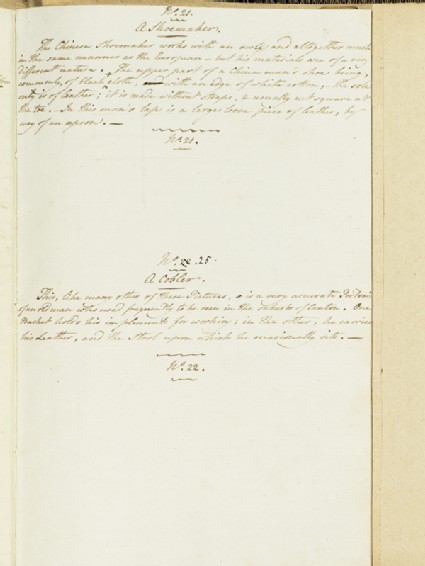 No. 21.
A Shoemaker.
The Chinese Shoemaker works with an awl, and altogether much
in the same manner as the European - but his materials are of a very
different nature. The upper part of a China man's shoe being,
commonly, of black cloth, with an edge of white cotton, the sole
only is of leather; it is made without straps, & usually cut square at
the toe. In this man's lap is a large loose piece of leather, by
way of an apron. —
No. 21.
No. 25.
A Cobler.
This, like many other of these Pictures, is a very accurate Portrait
of an old man who used frequently to be seen in the suburbs of Canton. One
Basket holds his implements for working; in the other, he carries
his Leather, and the Stool upon which he occasionally sits. —
No. 22.